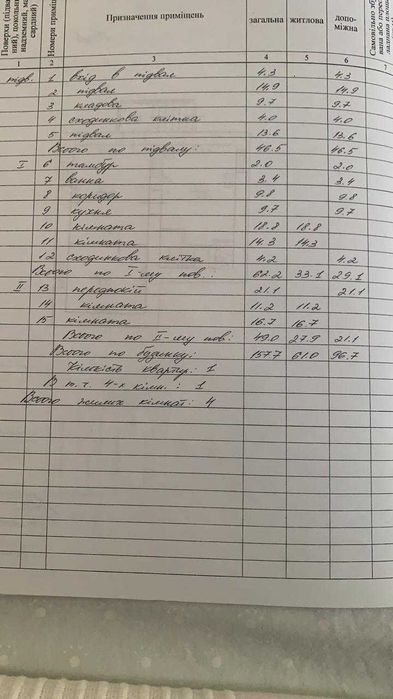 Поверхи (підва
ний), цокольн
надземний, ма
сардний)
Номери приміщ
Призначення приміщень
загальна
житлова
допо-
міжна
Самовільно збу
вана або перес
1 2 3 4 5 6 7
підв. 1 вхід в підвал 4.3 4.3
2 підвал 14.9 14.9
3 кладова 9.7 9.7
4 сходинкова клітка 4.0 4.0
5 підвал 13.6 13.6
Всього по підвалу: 46.5 46.5
I 6 тамбур 2.0 2.0
7 ванна 3.4 3.4
8 коридор 9.8 9.8
9 кухня 9.7 9.7
10 кімната 18.8 18.8
11 кімната 14.3 14.3
12 сходинкова клітка 4.2 4.2
Всього по I-му пов.: 62.2 33.1 29.1
II 13 передпокій 21.1 21.1
14 кімната 11.2 11.2
15 кімната 16.7 16.7
Всього по II-му пов: 49.0 27.9 21.1
Всього по будинку: 157.7 61.0 96.7
Кількість квартир: 1
В т.ч. 4-х кімн.: 1
Всього жилих кімнат: 4